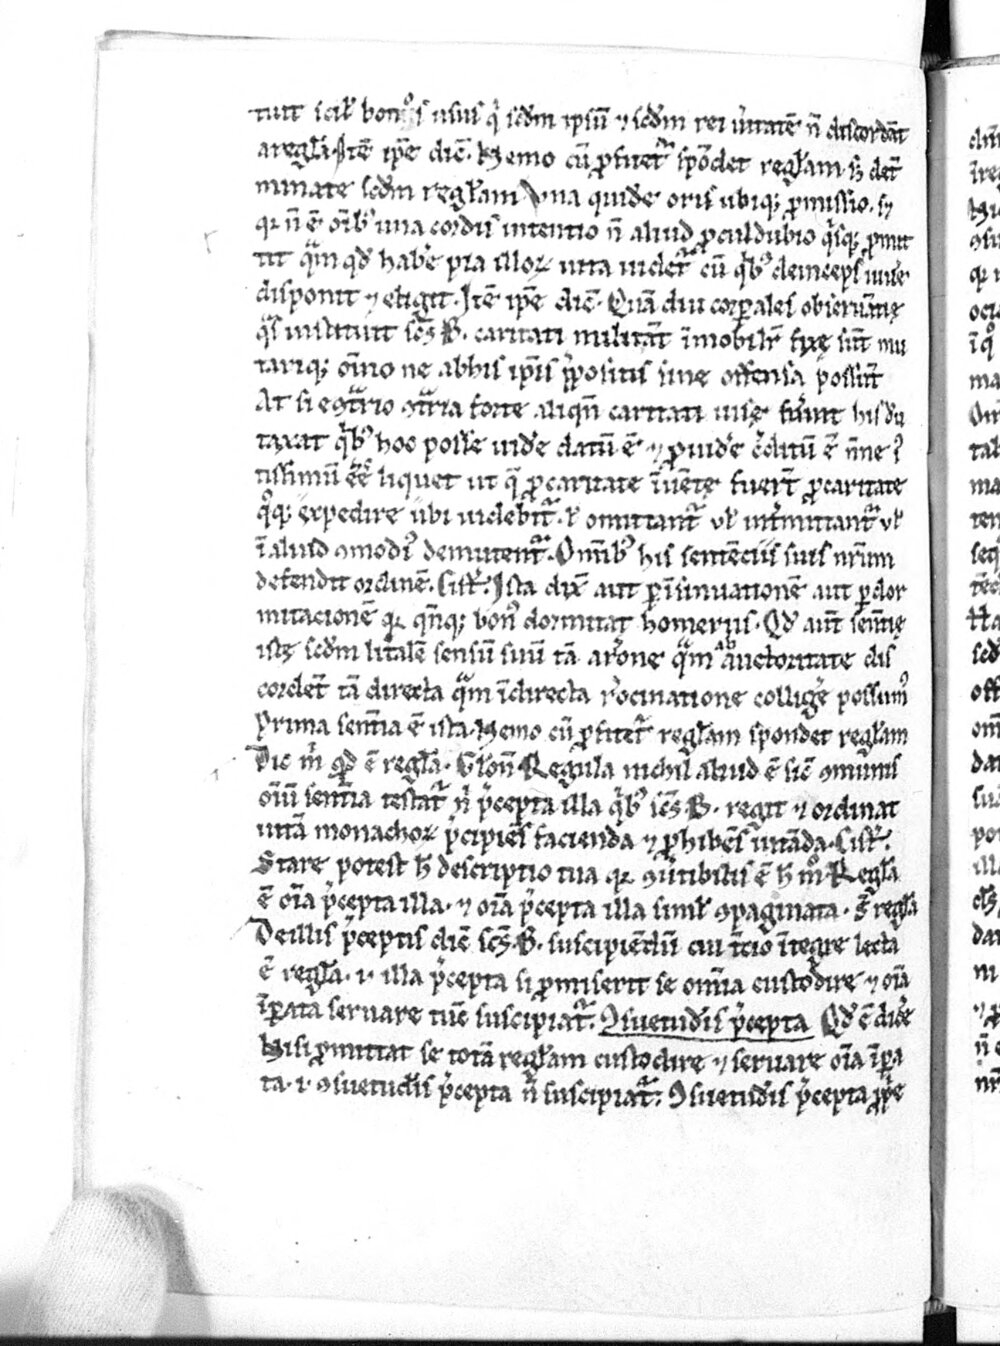 tuit scil' bon9 usus q' scdm ipsū ⁊ scdm rei u'itatē n̄ discordāt
a regła. Itē ip̄e dic̄. Nemo cū ꝓfitet᷑ spōdet regłam. s; det'
minate scdm regłam Una quidē oris ubiq; ꝓmissio. s;
qꝛ n̄ ē oīb; una cordis intentio n̄ aliud ꝓculdubio q'sq; ꝓmit
tit q̄m qd' hab'e p̄ia illoꝝ uita uidet᷑ cū q'b; deinceps uiu'e
disponit ⁊ eligit. Itē ip̄e dic̄. Quādiu corꝑales obseruātię
q̄s instituit sc̄s .B. caritati militāt īmobilit' fixę sūt mu
tariq; oīno ne ab his ip̄is p̄positis sine offensa possūt
At si econt̄rio cont̄ria forte aliqn̄ caritati uisę fu'int his dū
taxat q'b; hoc posse uid'e datū ē ⁊ ꝓuid'e c'ditū ē n̄ne ?
tissimū ēē liquet ut q̄ ꝓ caritate īuētę fuer̄t ꝓ caritate
q°q; expedire ubi uidebit᷑. ł omittant᷑ uł int'mittant᷑ uł
ī aliud ꝯmodi9 demutent᷑. Omīb; his sentēciis suis nr̄m
defendit ordinē. Cist'. Ista dix̄ aut ꝑ īsinuationē aut ꝑ dor
mitacionē qꝛ qn̄q; bon9 dormitat homerus. Qd' aūt sent̄ię
istę scdm litalē sensū suū tā arōne q̄m ab auctoritate dis
cordet᷑ tā directa q̄m īdirecta r̄ocinatione collig'e possum9
Prima sent̄ia ē ista. Nemo cū ꝓfitet᷑ regłam spondet regłam
Dic m' qd ē regła. Clun̄ Regula nichil aliud ē sic ꝯmunis
oīū sent̄ia testat᷑ n' p̄cepta illa q'b; sc̄s .B. regit ⁊ ordinat
uitā monachoꝝ p̄cipiēs facienda ⁊ ꝓhibēs uitāda. Cist'.
Stare potest h̄ descriptio tua qꝛ ꝯu'tibilis ē h̄ m° Regła
ē oīa p̄cepta illa. ⁊ oīa p̄cepta illa simł ꝯpaginata. s̄ regła
De illis p̄ceptis dic̄ sc̄s .B. suscipiēdū cui t'cio ītegre lecta
ē regła. i. illa p̄cepta si ꝓmiserit se omīa custodire ⁊ oīa
īꝑata seruare tūc suscipiat᷑. Ꝯsuetud'is p̄cepta Qd' ē dic'e
Nisi ꝓmittat se totā regłam custodire ⁊ seruare oīa īꝑa
ta. i. ꝯsuetud'is p̄cepta n̄ suscipiat᷑. Ꝯsuetud'is p̄cepta ꝓp'e